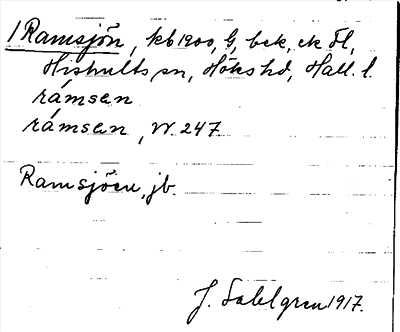 /Ramsjön, kb 1900, G, bek, ek Öl,
Hishults sn, Höks hd, Hall. l.
rámsen
rámsen, W. 247
Ramsjöen, jb.
J. Sahlgren 1917.